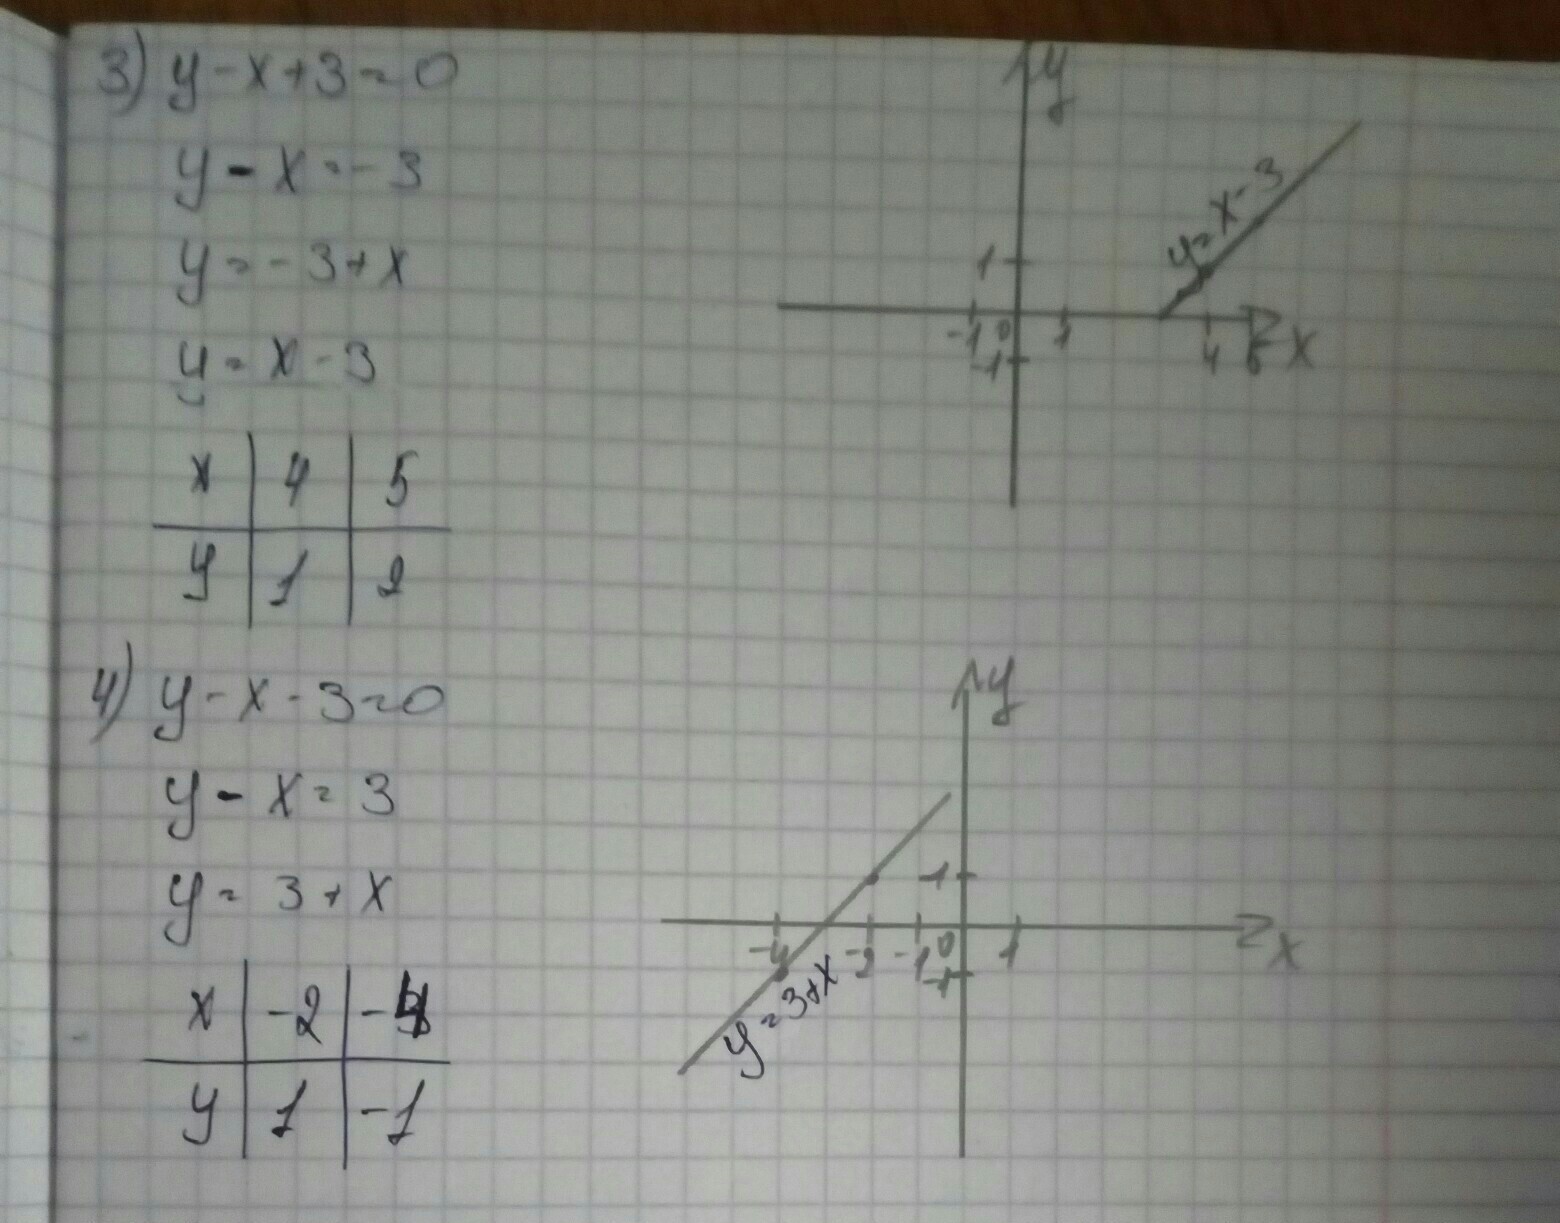 3) y-x+3=0
y-x=-3
y=-3+x
y=x-3
x 4 5
y 1 2
y
y=x-3
1
-1 0 1 4 x
-1
4) y-x-3=0
y-x=3
y=3+x
x -2 -4
y 1 -1
y
1
-4 -2 -1 0 1 x
-1
y=3+x